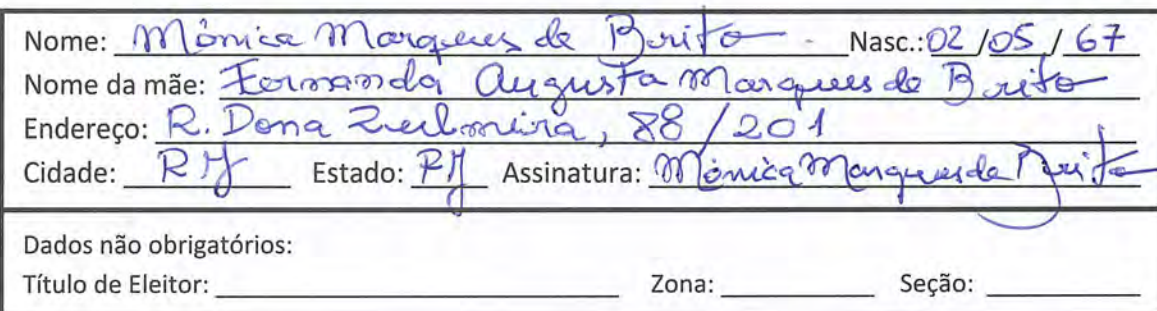 Nome: Mônica Marques de Brito Nasc.: 02/05/67
Nome da mãe: Fernanda Augusta Marques de Brito
Endereço: R. Dona Zulmira, 88/201
Cidade: RJ Estado: RJ Assinatura: Mônica Marques de Brito
Dados não obrigatórios:
Título de Eleitor: Zona: Seção: